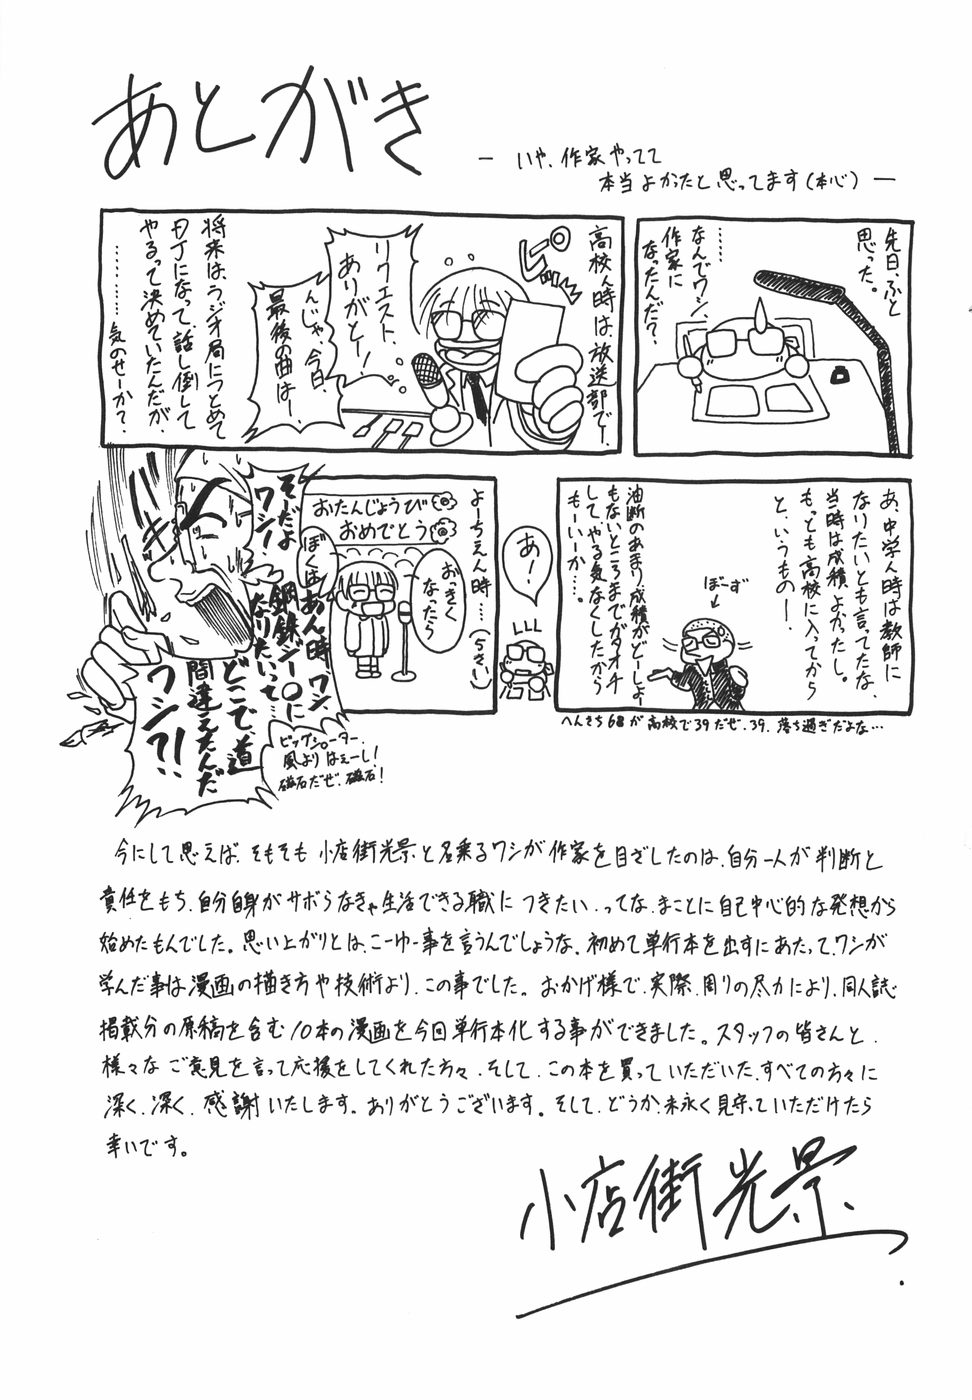 あとがき
― いや、作家やってて
本当よかったと思ってます(本心) ―
先日、ふと
思った。
……
なんでワシ、
作家に
なったんだ?
高校ん時は、放送部でー、
ピッ
リクエスト、
ありがとー!
んじゃ、今日、
最後の曲はー、
将来は、ラジオ局につとめて
DJになって、話し倒して
やるって決めていたんだが、
………気のせーか?
あ、中学ん時は教師に
なりたいとも言ってたな、
当時は成積よかったし。
もっとも高校に入ってから
と、いうものー、
ぼーず
油断のあまり、成積がどーしよー
もないところまでガタオチ
して、やる気なくしたから
もーいーか…。
へんさち68が高校で39だぜ、39、落ち過ぎだよな…
あ!
よーちえん時…(5さい)
おたんじょうび
おめでとう
おっきく
なったら
ぼくは
そーだよ
ワシ!
あん時、ワシ、
鋼鉄ジー○に
なりたいって…
どこで、道
間違えたんだ
ワシ?!
ビッグシューター、
風よりはえーし!
磁石だぜ、磁石!
今にして思えば、そもそも小店街光景と名乗るワシが作家を目ざしたのは、自分一人が判断と
責任をもち、自分自身がサボらなきゃ生活できる職につきたい、ってな、まことに自己中心的な発想から
始めたもんでした。思い上がりとは、こーゆー事を言うんでしょうな、初めて単行本を出すにあたって、ワシが
学んだ事は漫画の描き方や技術より、この事でした。おかげ様で、実際、周りの尽力により、同人誌
掲載分の原稿を含む10本の漫画を今回単行本化する事ができました。スタッフの皆さんと、
様々なご意見を言って応援をしてくれた方々、そして、この本を買っていただいた、すべての方々に
深く、深く、感謝いたします。ありがとうございます。そして、どうか、末永く見守っていただけたら
幸いです。
小店街光景